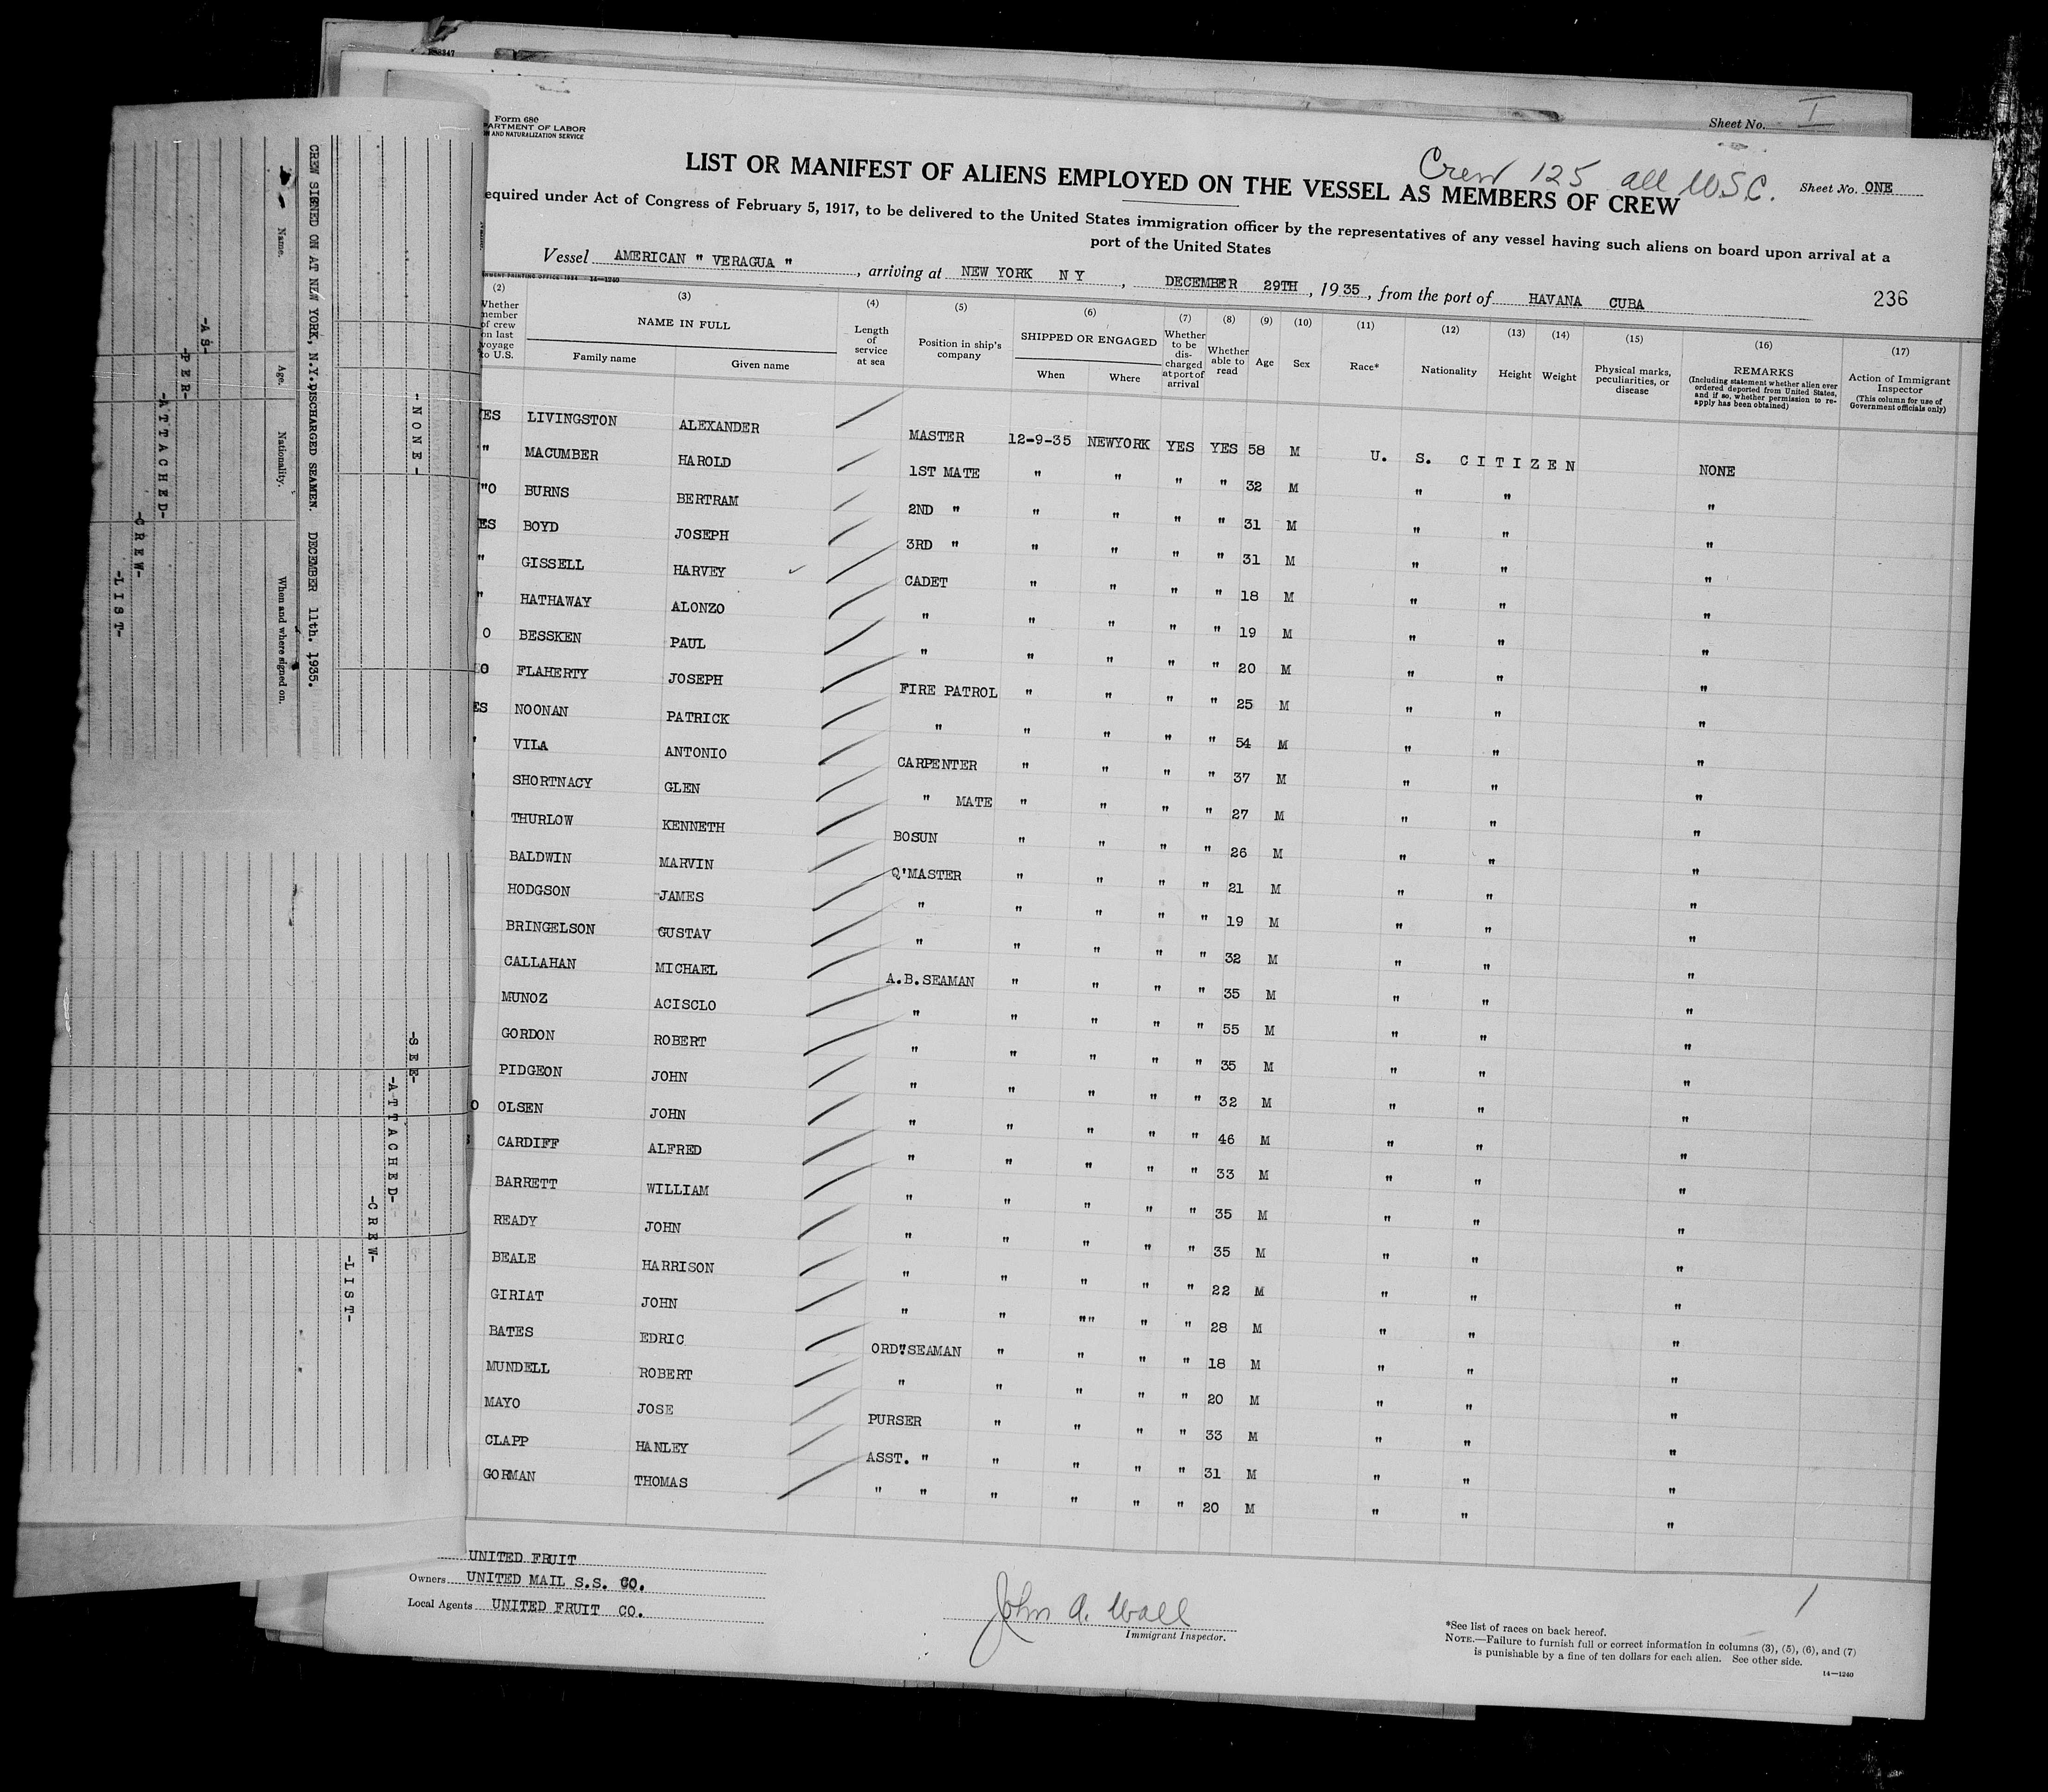 Sheet No. I
Form 680
PARTMENT OF LABOR
AND NATURALIZATION SERVICE
Crew 125 all U.S.C.
LIST OR MANIFEST OF ALIENS EMPLOYED ON THE VESSEL AS MEMBERS OF CREW
Sheet No. ONE
equired under Act of Congress of February 5, 1917, to be delivered to the United States immigration officer by the representatives of any vessel having such aliens on board upon arrival at a
port of the United States
Vessel AMERICAN " VERAGUA " , arriving at NEW YORK N Y , DECEMBER 29TH , 1935 , from the port of HAVANA CUBA
236
14—1240
(2) (3) (4) (5) (6) (7) (8) (9) (10) (11) (12) (13) (14) (15) (16) (17)
Whether member of crew on last voyage to U.S.
NAME IN FULL
Family name Given name
Length of service at sea
Position in ship's company
SHIPPED OR ENGAGED
When Where
Whether to be discharged at port of arrival
Whether able to read
Age
Sex
Race*
Nationality
Height
Weight
Physical marks, peculiarities, or disease
REMARKS
(Including statement whether alien ever ordered deported from United States, and if so, whether permission to reapply has been obtained)
Action of Immigrant Inspector
(This column for use of Government officials only)
ES LIVINGSTON ALEXANDER MASTER 12-9-35 NEWYORK YES YES 58 M U. S. CITIZEN NONE
" MACUMBER HAROLD 1ST MATE " " " " 32 M " " "
"O BURNS BERTRAM 2ND " " " " " 31 M " " "
ES BOYD JOSEPH 3RD " " " " " 31 M " " "
" GISSELL HARVEY CADET " " " " 18 M " " "
" HATHAWAY ALONZO " " " " " 19 M " " "
O BESSKEN PAUL " " " " " 20 M " " "
O FLAHERTY JOSEPH FIRE PATROL " " " " 25 M " " "
ES NOONAN PATRICK " " " " " 54 M " " "
" VILA ANTONIO CARPENTER " " " " 37 M " " "
SHORTNACY GLEN " MATE " " " " 27 M " " "
THURLOW KENNETH BOSUN " " " " 26 M " " "
BALDWIN MARVIN Q'MASTER " " " " 21 M " " "
HODGSON JAMES " " " " " 19 M " " "
BRINGELSON GUSTAV " " " " " 32 M " " "
CALLAHAN MICHAEL A.B.SEAMAN " " " " 35 M " " "
MUNOZ ACISCLO " " " " " 55 M " " "
GORDON ROBERT " " " " " 35 M " " "
PIDGEON JOHN " " " " " 32 M " " "
O OLSEN JOHN " " " " " 46 M " " "
CARDIFF ALFRED " " " " " 33 M " " "
BARRETT WILLIAM " " " " " 35 M " " "
READY JOHN " " " " " 35 M " " "
BEALE HARRISON " " " " " 22 M " " "
GIRIAT JOHN " " "" " " 28 M " " "
BATES EDRIC ORD"SEAMAN " " " " 18 M " " "
MUNDELL ROBERT " " " " " 20 M " " "
MAYO JOSE PURSER " " " " 33 M " " "
CLAPP HANLEY ASST. " " " " " 31 M " " "
GORMAN THOMAS " " " " " " 20 M " " "
UNITED FRUIT
Owners UNITED MAIL S.S. CO.
Local Agents UNITED FRUIT CO.
John A. Wall
Immigrant Inspector.
1
*See list of races on back hereof.
NOTE.—Failure to furnish full or correct information in columns (3), (5), (6), and (7)
is punishable by a fine of ten dollars for each alien. See other side.
14—1240
-NONE-
CREW SIGNED ON AT NEW YORK, N.Y. DISCHARGED SEAMEN. DECEMBER 11th. 1935.
Name. Age. Nationality. When and where signed on.
-AS-
-PER-
-ATTACHED-
-CREW-
-LIST-
-SEE-
-ATTACHED-
-CREW-
-LIST-